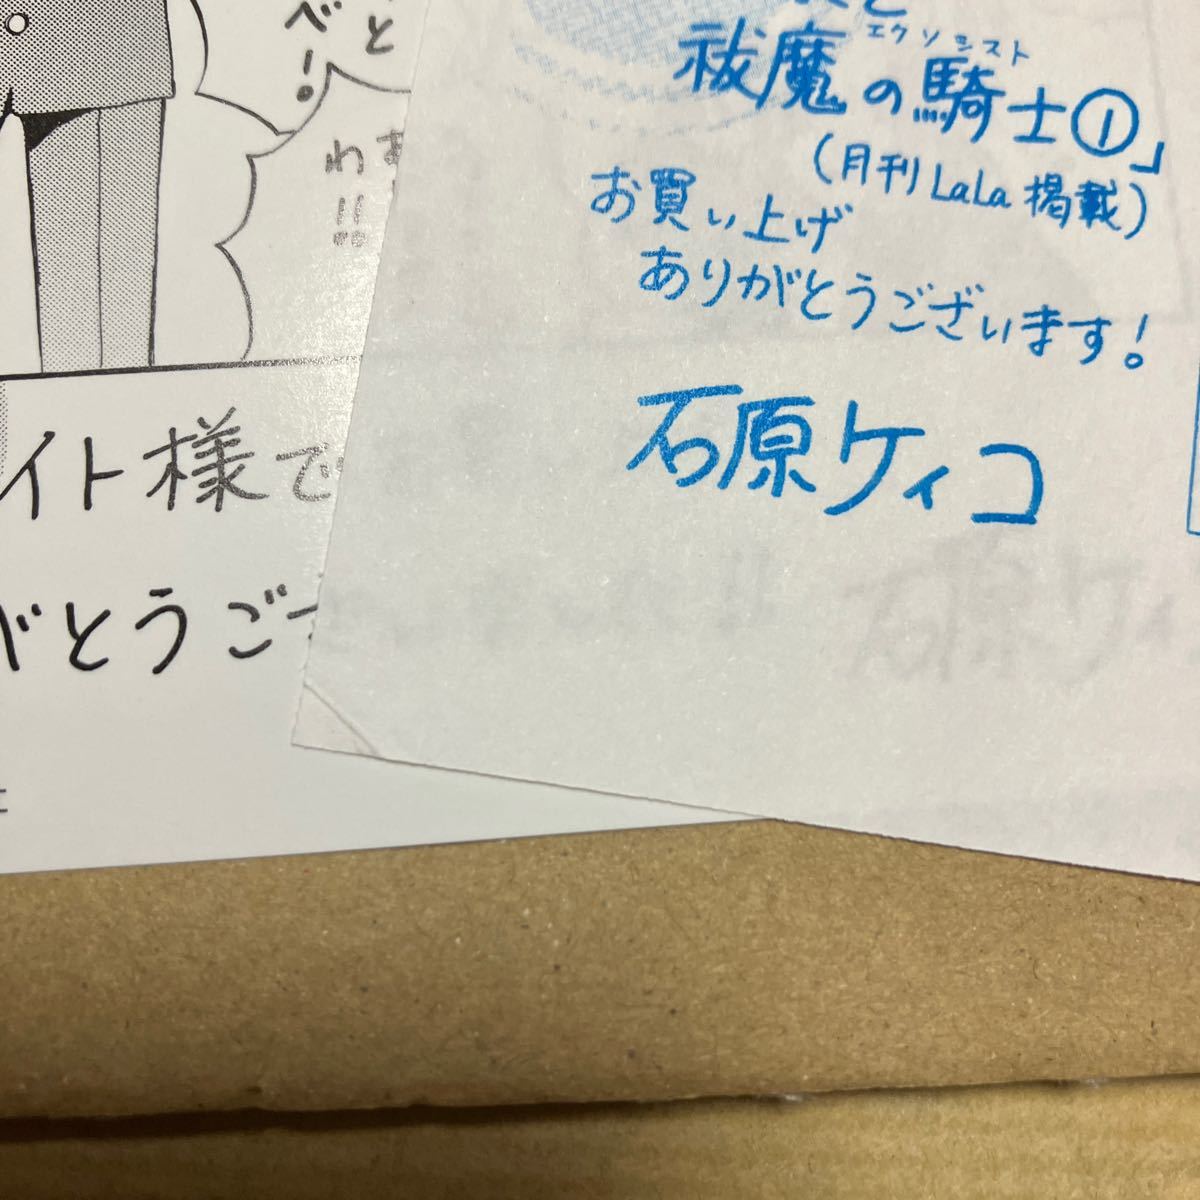 と
べ!
わ!!
イト様で
がとうござ
と
エクソシスト
祓魔の騎士①」
(月刊LaLa掲載)
お買い上げ
ありがとうございます!
石原ケイコ